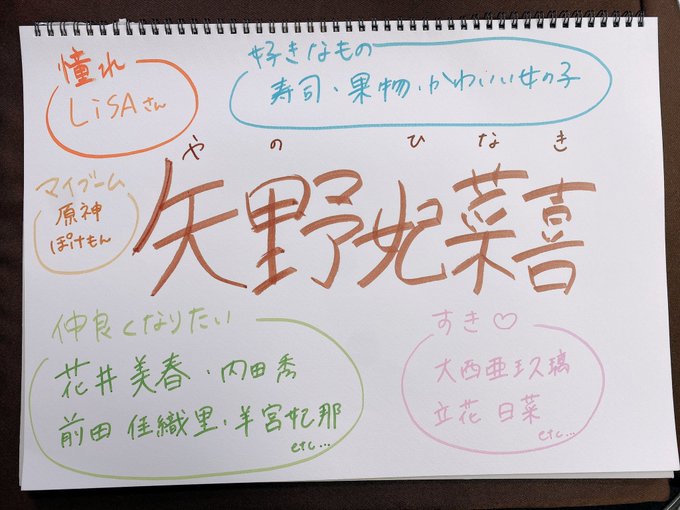 憧れ
LiSAさん
好きなもの
寿司・果物・かわいい女の子
やの ひなき
矢野妃菜喜
マイブーム
原神
ぽけもん
仲良くなりたい
花井美春・内田秀
前田佳織里・羊宮妃那
etc...
すき♡
大西亜玖璃
立花日菜
etc...